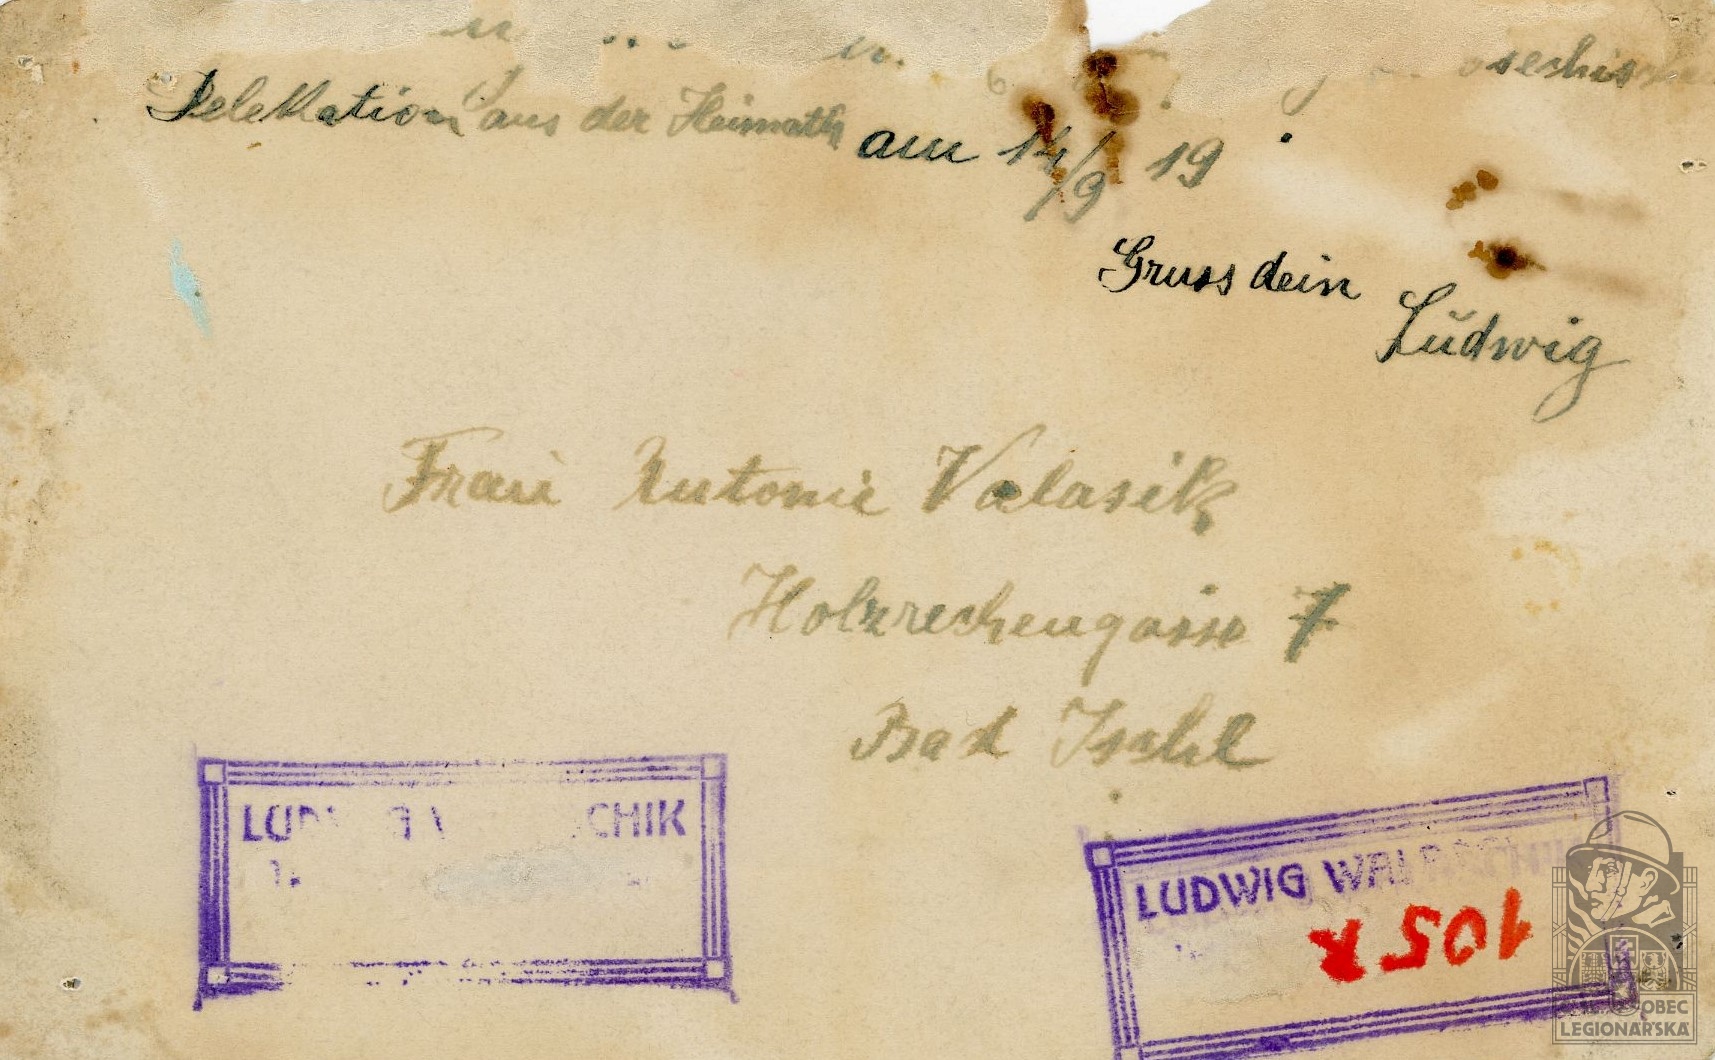 Delekation aus der Heimath am 14/9 19
Gruss dein
Ludwig
Frau Antonie Valasik
Holzrechengasse 7
Bad Ischl
CHIK
LUDWIG
105 K
OBEC
LEGIONÁŘSKÁ